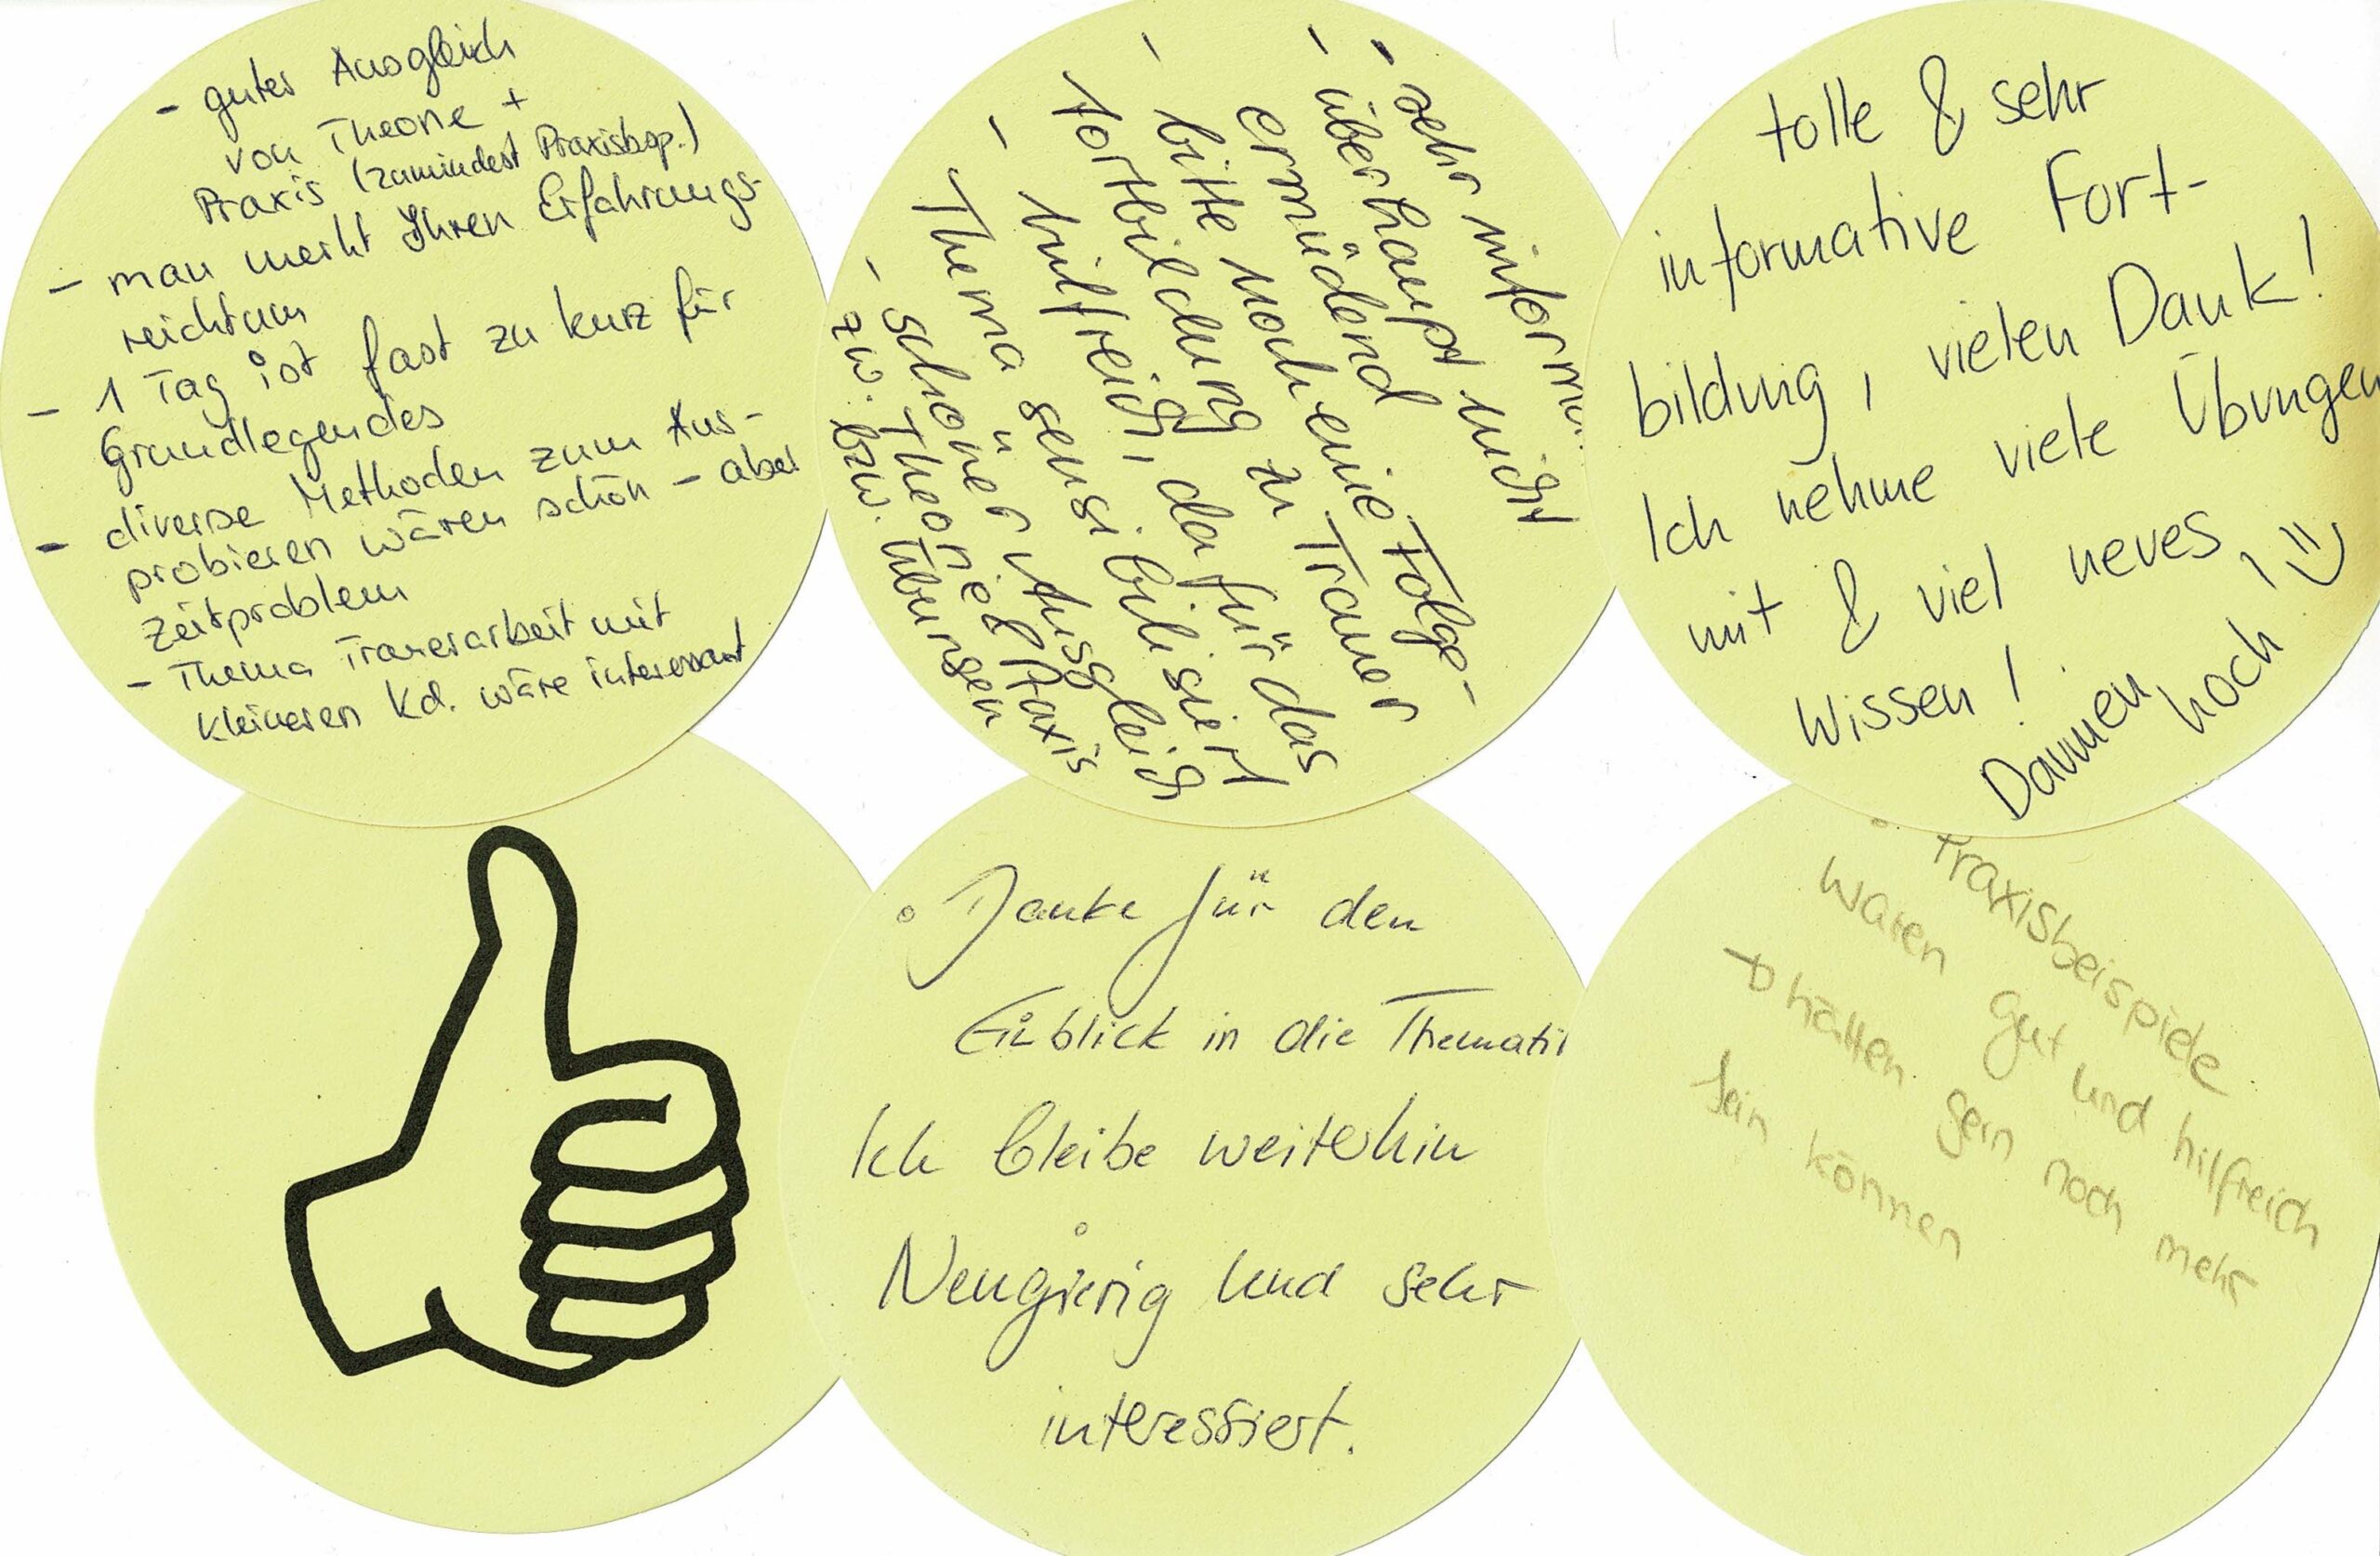 - gutes Ausgleich
von Theorie +
Praxis (zumindest Praxisbsp.)
- man merkt Ihren Erfahrungs-
reichtum
- 1 Tag ist fast zu kurz für
Grundlegendes
- diverse Methoden zum Aus-
probieren wären schön - aber
Zeitproblem
- Thema Trauerarbeit mit
kleineren Kd. wäre interessant
- sehr inform
- überhaupt nicht
ermüdend
- bitte noch eine Folge-
fortbildung zu Trauer
- hilfreich, da für das
Thema sensibilisiert
- schöner Ausgleich
zw. Theorie & Praxis
bzw. Übungen
tolle & sehr
informative Fort-
bildung, vielen Dank!
Ich nehme viele Übungen
mit & viel neues
Wissen!
Daumen
hoch
• Danke für den
Einblick in die Themati
Ich bleibe weiterhin
Neugierig und sehr
interessiert.
• Praxisbeispiele
waren gut und hilfreich
→ hätten gern noch mehr
sein können